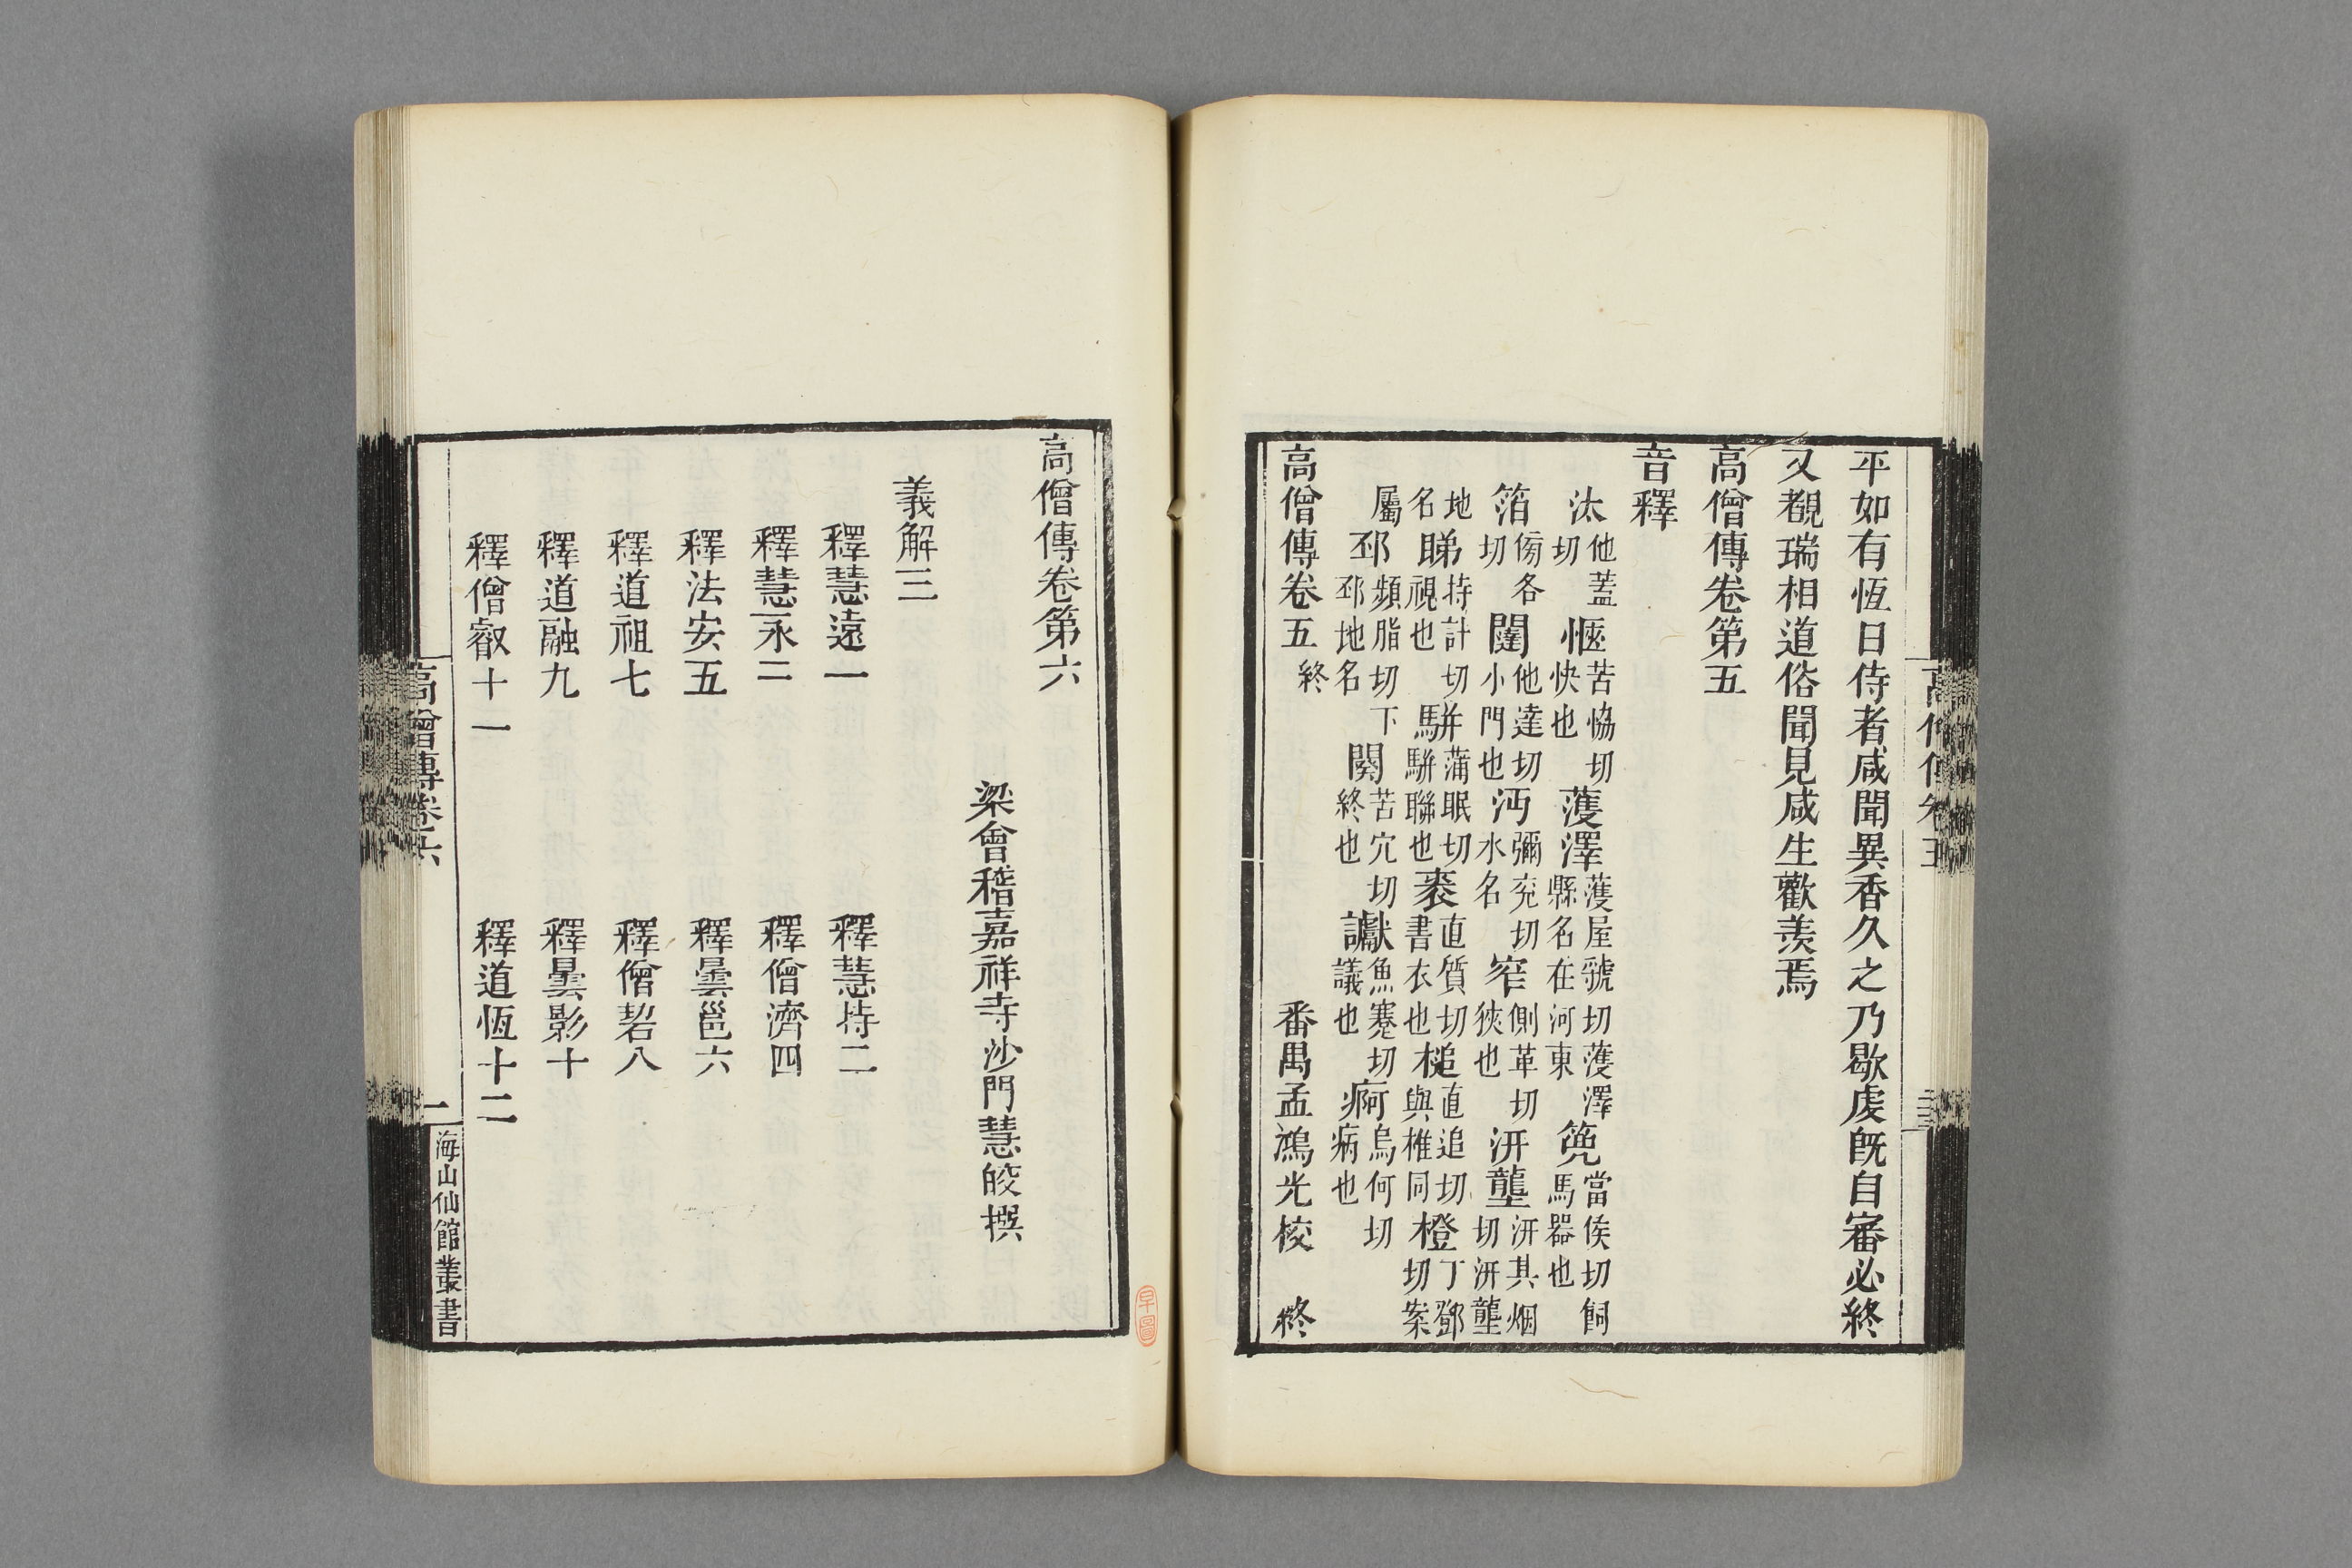 平如有恆日侍者咸聞異香久之乃歇虔旣自審必終
又覩瑞相道俗聞見咸生歡羨焉
高僧傳卷第五
音釋
汰他蓋切 愜苦協切快也 濩澤濩屋虢切濩澤縣名在河東 篼當侯切飼馬器也
箔傍各切 闥他達切小門也 沔彌兖切水名 窄側革切狹也 汧壟汧其烟切汧壟
地名 睇持計切視也 駢幷蒲眠切駢聯也 袠直質切書衣也 槌直追切與椎同 橙丁鄧切案
屬 邳頻脂切下邳地名 闋苦穴切終也 讞魚蹇切議也 痾烏何切病也
高僧傳卷五終 番禺孟鴻光校 終
高僧傳卷第六
梁會稽嘉祥寺沙門慧皎撰
義解三
釋慧遠一 釋慧持二
釋慧永三 釋僧濟四
釋法安五 釋曇邕六
釋道祖七 釋僧䂮八
釋道融九 釋曇影十
釋僧叡十一 釋道恆十二
高僧傳卷六
一
海山仙館叢書